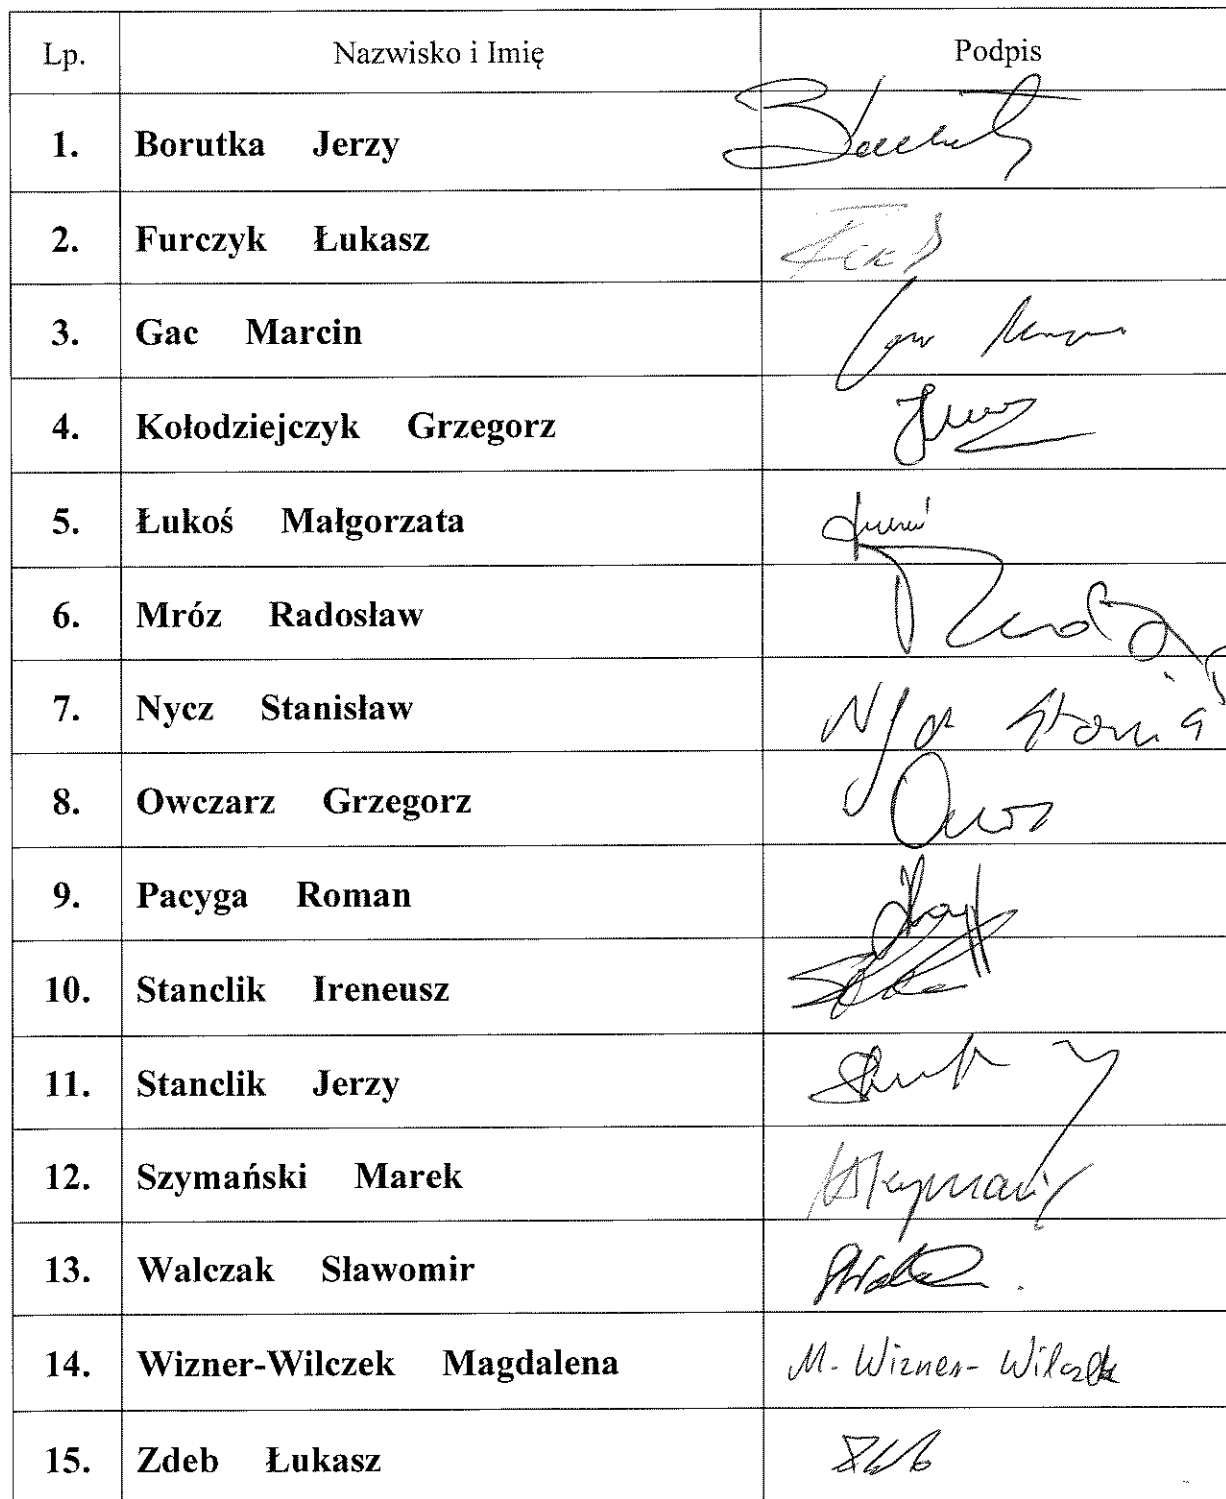 Lp. Nazwisko i Imię Podpis
1. Borutka Jerzy
2. Furczyk Łukasz
3. Gac Marcin
4. Kołodziejczyk Grzegorz
5. Łukoś Małgorzata
6. Mróz Radosław
7. Nycz Stanisław
8. Owczarz Grzegorz
9. Pacyga Roman
10. Stanclik Ireneusz
11. Stanclik Jerzy
12. Szymański Marek
13. Walczak Sławomir
14. Wizner-Wilczek Magdalena M. Wizner-Wilczek
15. Zdeb Łukasz